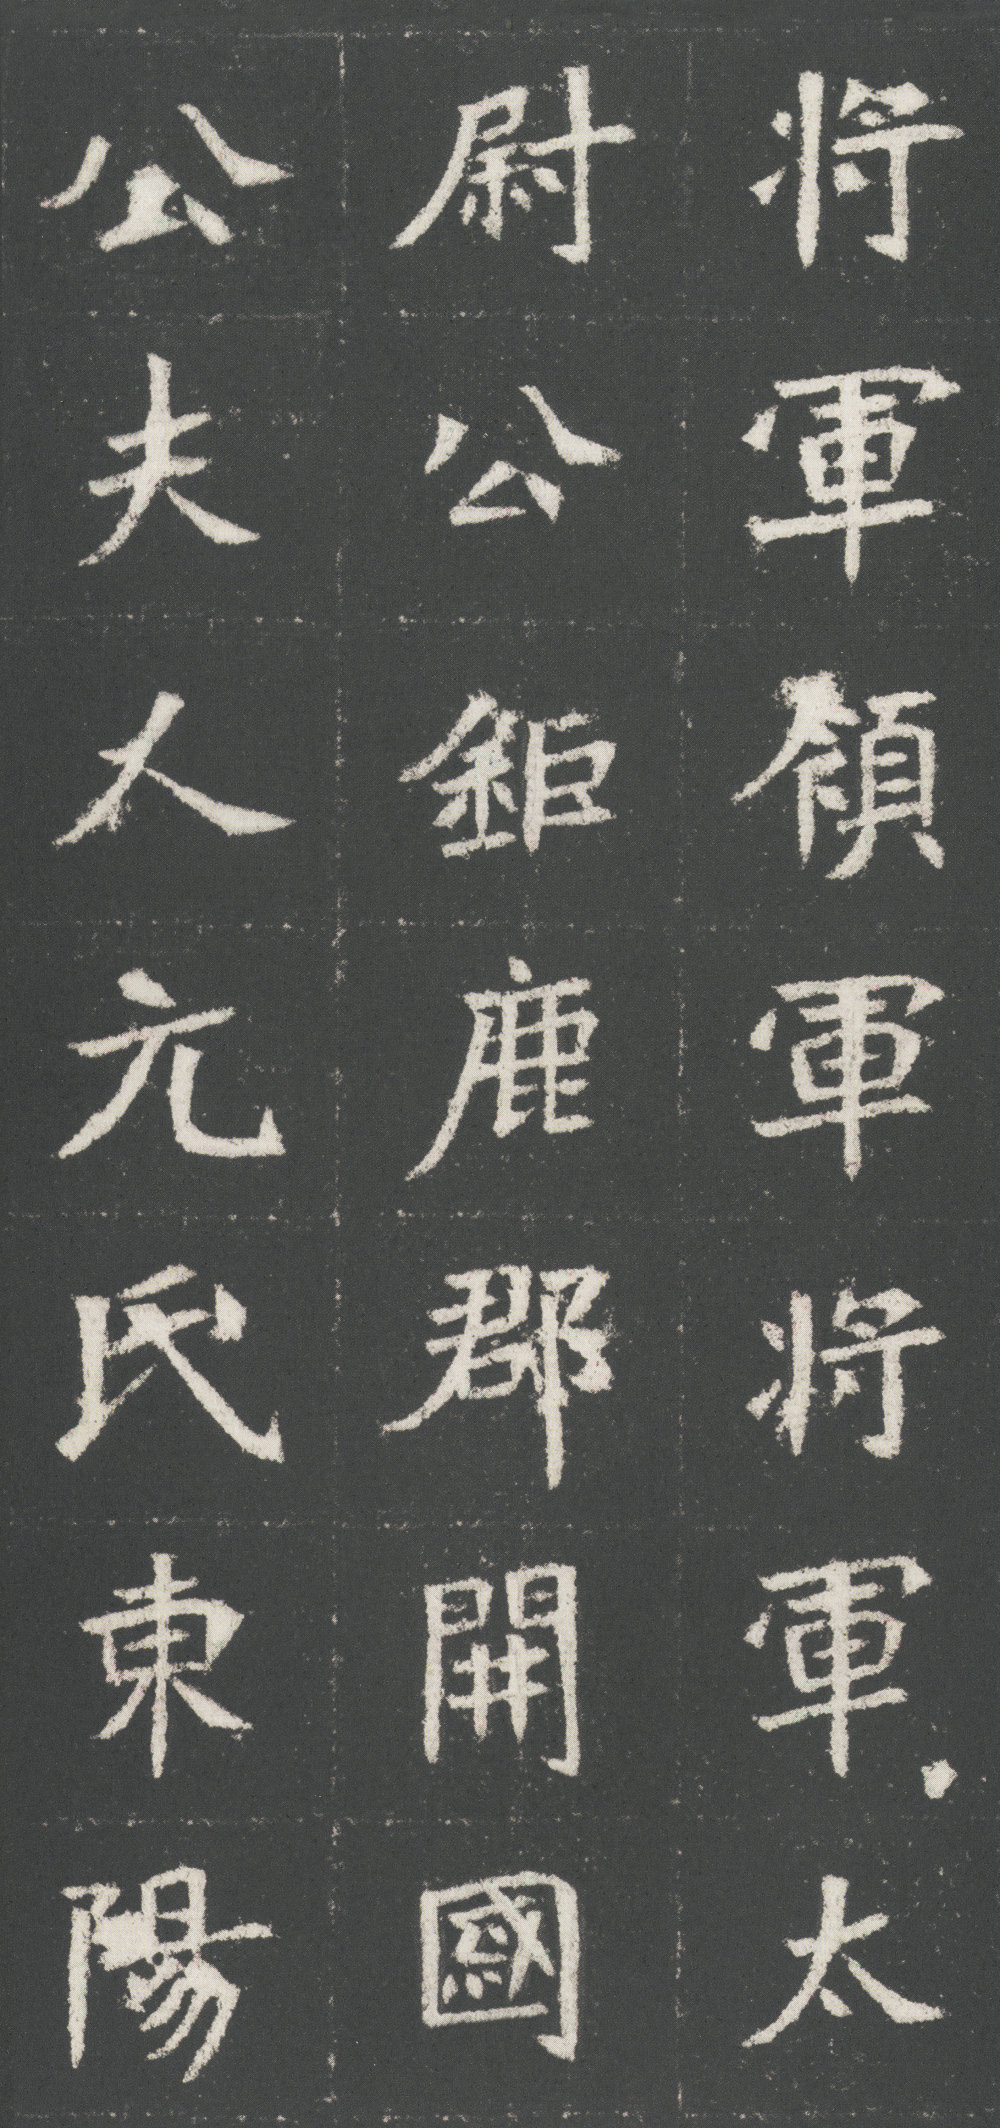 将軍領軍将軍太
尉公鉅鹿郡開國
公夫人元氏東陽